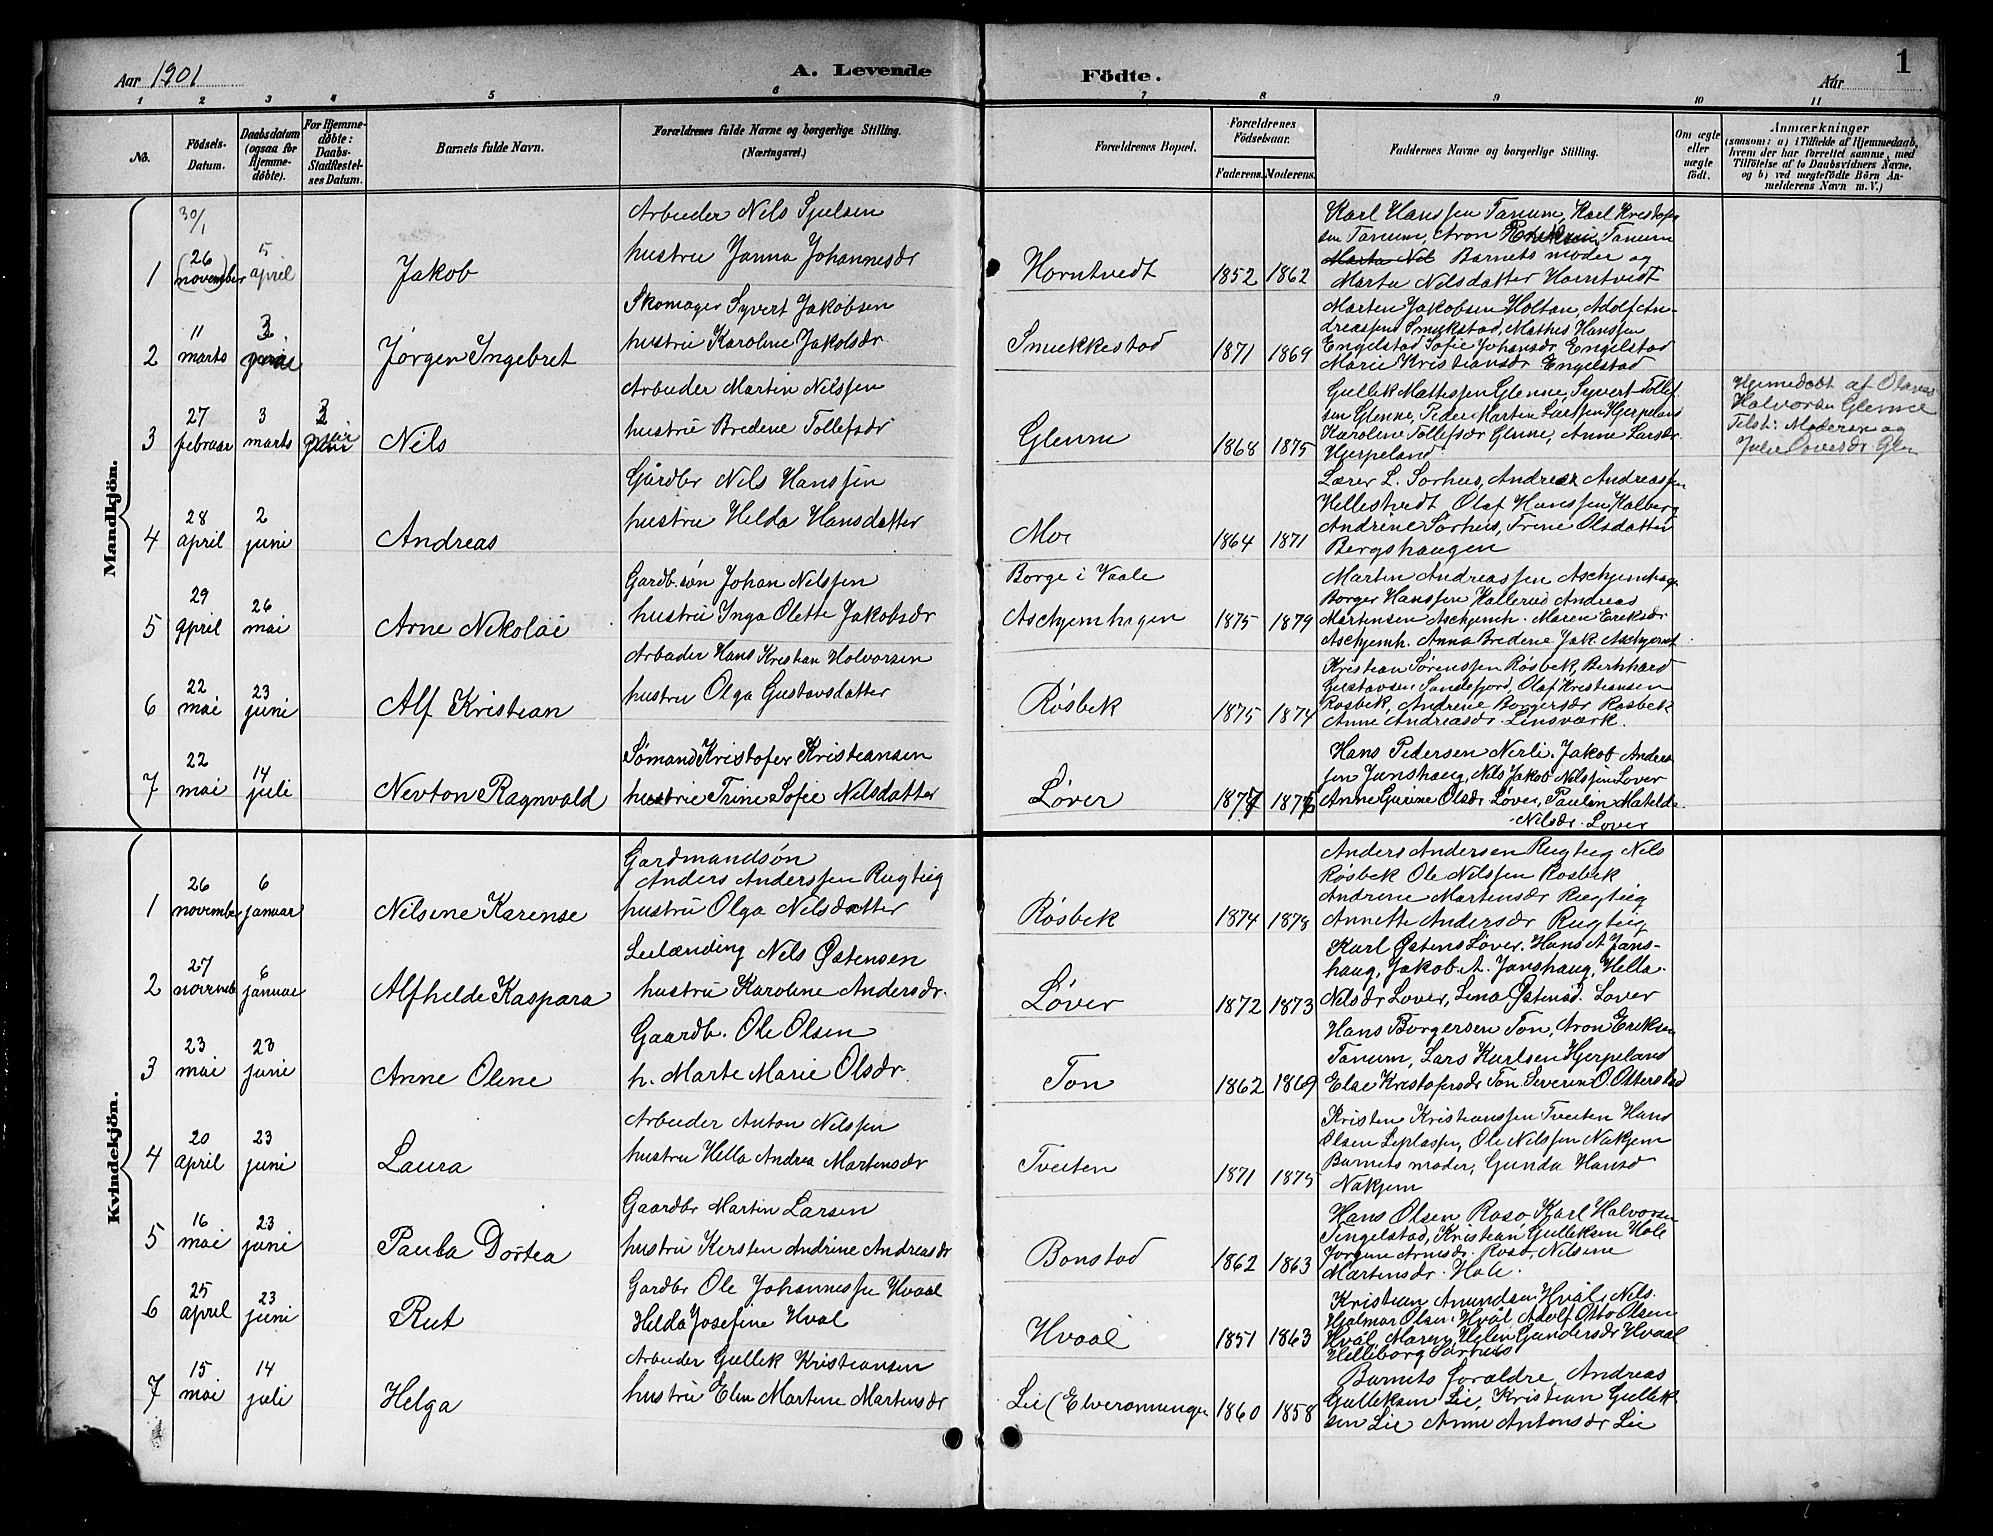 Aar 1901
A. Levende
Födte.
Aar
1
1 2 3 4 5 6 7 8 9 10 11
No.
Födsels-
Datum.
Daabsdatum
(ogsaa for
Hjemme-
døbte).
For Hjemme-
døbte:
Daabs-
Stadfæstel-
ses Datum.
Barnets fulde Navn.
Forældrenes fulde Navne og borgerlige Stilling.
(Næringsvei.)
Forældrenes Bopæl.
Forældrenes
Födselsaar.
Faderens. Moderens.
Faddernes Navne og borgerlige Stilling.
Om ægte
eller
uægte
født.
Anmærkninger
(saasom: a) i Tilfælde af Hjemmedaab,
hvem der har forrettet samme, med
Tilföielse af to Daabsvidners Navne,
og b) ved uægtefödte Börn An-
melderens Navn m. V.)
Mandkjön.
30/1
1 (26 november) 5 april Jakob
Arbeider Nils
hustru Janna Johannesdr
Horntvedt 1852 1862
Karl Hanssen Tanum, Karl Kristofer
sen Tanum, Aron Eriksen Tanum
Barnets moder og
Marta Nilsdatter Horntvedt
2 11 marts Jørgen Ingebret
Skomager Syvert Jakobsen
hustru Karoline Jakobsdr
Smukkestad 1871 1869
Marten Jakobsen Holtan, Adolf An-
dreassen Smukstad, Mathis Hanssen
Engelstad Sofie Johansdr Engelstad
Marie Kristiansdr Engelstad
3 27 februar 3 marts Nils
Arbeider Martin Nilssen
hustru Bredene Tollefsdr
Glenne 1868 1875
Gullek Mathissen Glenne, Syvert Tollef
sen Glenne, Peder Martin Larssen Hjerpeland
Karoline Tollefsdr Glenne, Anne Larsdr
Hjerpeland
Hjemedøbt af
Halvorsen Glenne
Tilst: Moderen og
Julie
4 28 april 2 juni Andreas
Gårdbr Nils Hanssen
hustru Helda Hansdatter
Moe 1864 1871
Lærer L. Sørhus, Andreas Andreassen
Hellestvedt Olaf Hanssen Holberg
Andrine Sørhus, Trine Olsdatter
Bergshaugen
5 29 april 26 mai Arne Nikolai
Gardb. søn Johan Nilssen
hustru Inga Olette Jakobsdr
Borge i Vaale
Aschjemhagen 1875 1879
Martin Andreassen Aschjemhag.
Borger Hanssen Kallerud Andreas
Martensen Aschjemh. Maren Eriksdr
Aschjemh. Anna Bredene Jak. Aschjemh.
6 22 mai 23 juni Alf Kristian
Arbeider Hans Kristian Holvorsen
hustru Olga Gustavsdatter
Røsbek 1875 1874
Kristian Sørenssen Røsbek, Bernhard
Gustavsen Sandefjord, Olaf Kristiansen
Røsbek, Andrine Borgersdr Røsbek
Anne Andreasdr Linsværk.
7 22 mai 14 juli Nevton Ragnvald
Sømand Kristofer Kristiansen
hustru Trine Sofie Nilsdatter
Løver 1877 1876
Hans Pedersen Nerli, Jakob Anders
sen Janshaug, Nils Jakob Nilssen Løver
Anne Gurine Olsdr Løver, Paulin Matelde
Nilsdr. Løver
Kvindekjön.
1 26 november 6 januar Nilsine Karense
Gardmandsøn
Anders Anderssen Rugteig
hustru Olga Nilsdatter
Røsbek 1874 1878
Anders Andersen Rugteig Nils
Røsbek Ole Nilssen Røsbek
Andrine Martensdr Rugteig
Annette Andersdr Rugteig
2 27 november 6 januar Alfhelde Kaspara
Leilænding Nils Østensen
hustru Karoline Andersdr.
Løver 1872 1873
Karl Østens Løver. Hans A Jans-
haug, Jakob A. Janshaug, Hella
Nilsdr Løver, Lina Østensd. Løver
3 23 mai 23 juni Anne Oline
Gaardb. Ole Olsen
h. Marte Marie Olsdr.
Ton 1862 1869
Hans Borgersen Ton, Aron Eriksen
Tanum, Lars Karlsen Hjerpeland
Else Kristofersdr Ton Severin O. Otterstad
4 20 april 23 juni Laura
Arbeider Anton Nilssen
hustru Hella Andrea Martensdr
Tveiten 1871 1875
Kristen Kristianssen Tveiten Hans
Olsen Ole Nilssen Nakjem
Barnets moder, Gunda Hansd
Nakjem
5 16 mai 23 juni Paula Dortea
Gaardbr Martin Larsen
hustru Kersten Andrine Andreasdr
Bonstad 1862 1863
Hans Olsen Rasø Karl Halvorsen
Tengelstad, Kristian Gulleksen Hole
Jorgine Arnesdr. Rasø, Nilsine
Martensdr. Hole.
6 25 april 23 juni Rut
Gardbr Ole Johannessen Hvaal
Helda Josefine Hval
Hvaal 1851 1863
Kristian Amundsen Hvål, Nils
Hjalmar Olsen Hvål Adolf Otto Olsen
Hvål, Maren Helen Gundersdr Hvaal
Helliborg Sørhus
7 15 mai 14 juli Helga
Arbeider Gullek Kristiansen
hustru Elen Martine Martensdr
Lie (Elverønningen 1860 1858
Barnets forældre, Andreas
Gulleksen Lie, Kristian Gullek-
sen Lie Anne Antonsdr Lie